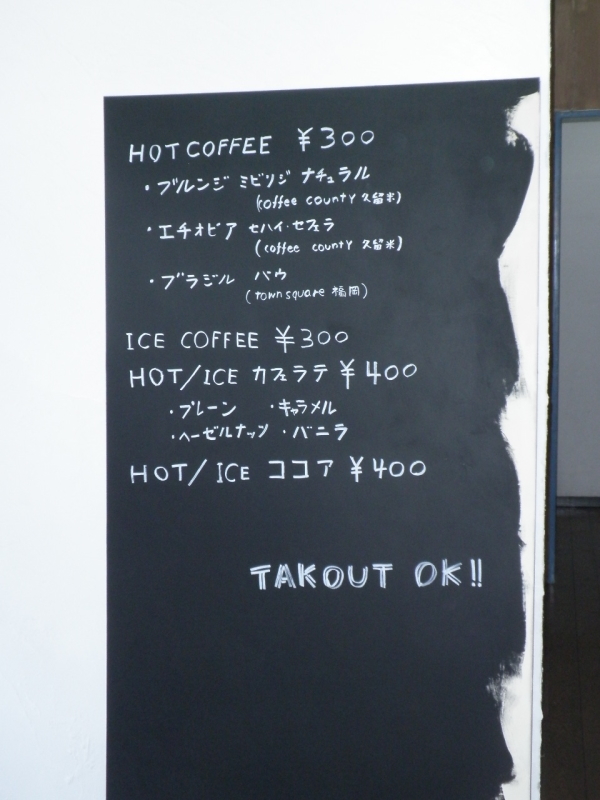 HOT COFFEE ¥300
・ブルンジ ミビリジ ナチュラル
(coffee county 久留米)
・エチオピア セハイ・セフェラ
(coffee county 久留米)
・ブラジル バウ
(town square 福岡)
ICE COFFEE ¥300
HOT/ICE カフェラテ ¥400
・プレーン ・キャラメル
・ヘーゼルナッツ ・バニラ
HOT/ICE ココア ¥400
TAKOUT OK!!